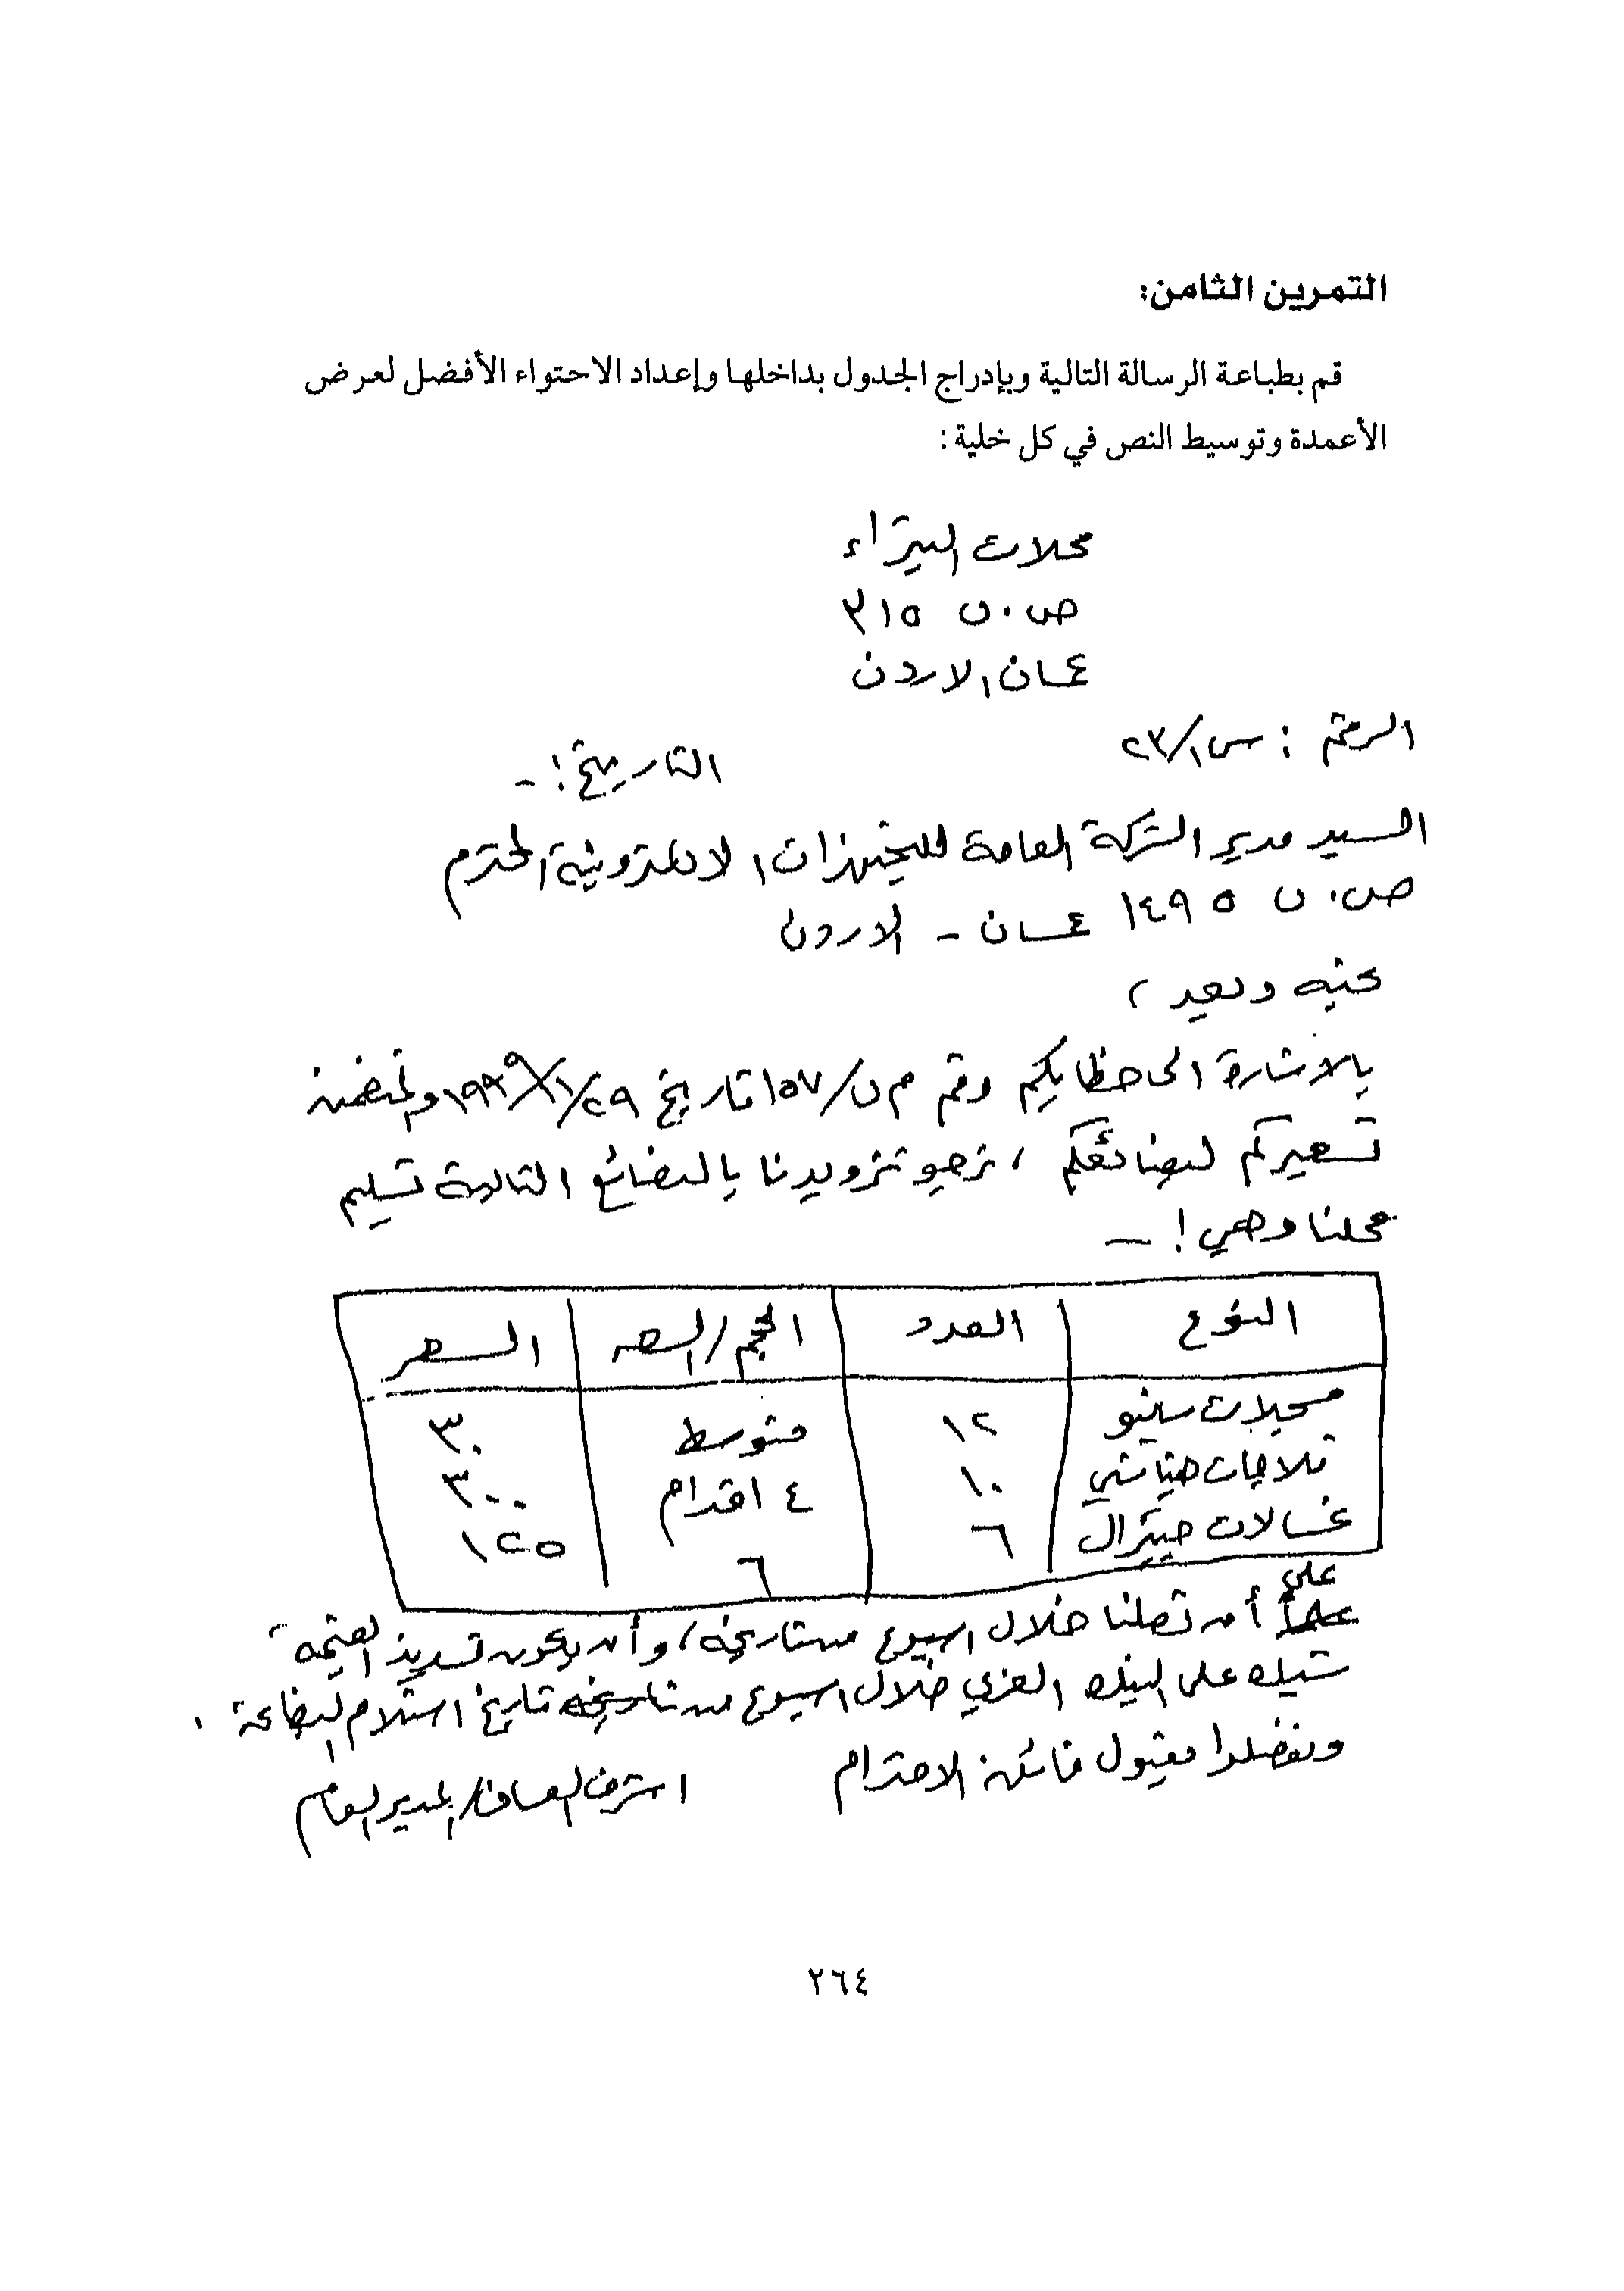 التمرين الثامن:
قم بطباعة الرسالة التالية وبإدراج الجدول بداخلها وإعداد الاحتواء الأفضل لعرض
الأعمدة وتوسيط النص في كل خلية:
محلات البتراء
ص.ب ٣١٥
عمان الاردن
الرقم : س/٢٣/١
التاريخ :-
السيد مدير الشركة العامة للتجهيزات الالكترونية المحترم
ص.ب ١٤٩٥ عمان - الاردن
تحية وبعد ،
بالاشارة الى خطابكم رقم م ن/١٥٧ تاريخ ١٩٩٩/١/٢٩ والمتضمن
تسعيركم لبضائعكم ، نرجو تزويدنا بالبضائع التالية تسليم
محلنا وهي :-
النوع العدد الحجم/السعه السعر
مسجلات سانيو ١٢ متوسط ٣٠
ثلاجات ١٠ ٤ اقدام ٣٠٠
غسالات جنرال ٦ ٦ ١٢٥
على أن تصلنا خلال اسبوع من تاريخه ، وأن يكون تسديد القيمة
بشيك على البنك العربي خلال اسبوع من تاريخ استلام البضاعة .
وتفضلوا بقبول فائق الاحترام
اشرف العساف/المدير العام
٢٦٤